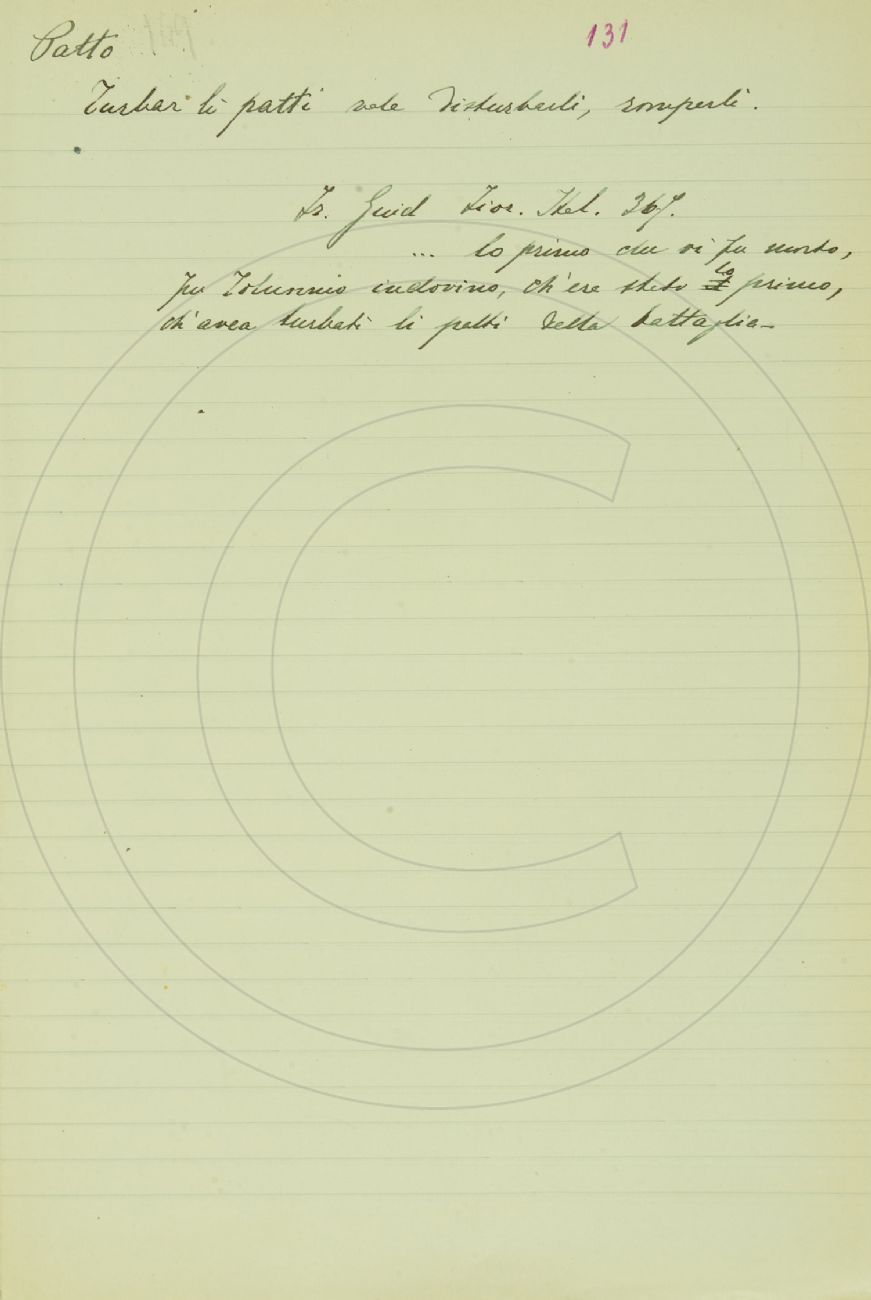 Patto
131
Turbar li patti vale Disturbarli, romperli.
Fr. Guid Fior. Ital. 367.
... lo primo che vi fu morto,
fu Tolunnio indovino, ch'era stato lo primo,
ch'avea turbati li patti della battaglia_